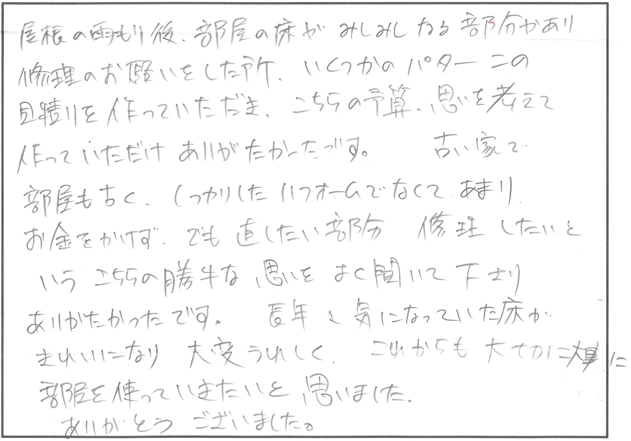 屋根の雨もり後、部屋の床が みしみしなる 部分があり
修理のお願いをした所、いくつかのパターンの
見積りを作っていただき、こちらの予算、思いを考えて
作っていただけ ありがたかったです。 古い家で
部屋も古く、しっかりしたリフォームでなくて あまり
お金をかけず、でも 直したい部分 修理 したいと
いう こちらの勝手な 思いを よく聞いて 下さり
ありがたかったです。 長年、気になっていた床が
きれいになり 大変うれしく、これからも 大切に
部屋を使っていきたいと 思いました。
ありがとう ございました。